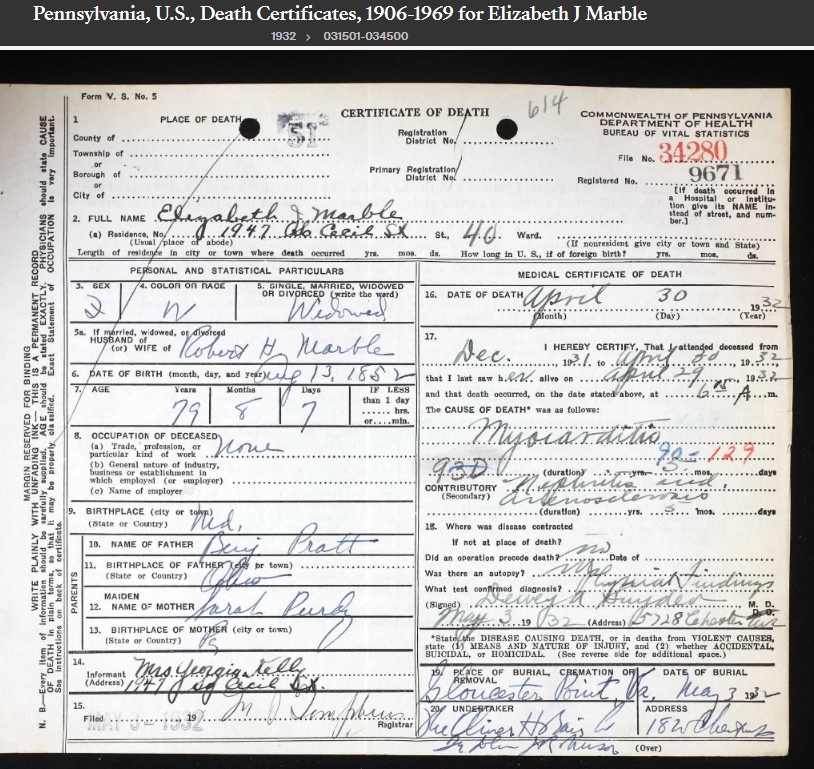 Pennsylvania, U.S., Death Certificates, 1906-1969 for Elizabeth J Marble
1932 > 031501-034500
Form V. S. No. 5
1 PLACE OF DEATH
County of
Township of
or
Borough of
or
City of
51
CERTIFICATE OF DEATH
614
Registration
District No.
Primary Registration
District No.
COMMONWEALTH OF PENNSYLVANIA
DEPARTMENT OF HEALTH
BUREAU OF VITAL STATISTICS
File No. 34280
Registered No. 9671
[If death occurred in
a Hospital or Institu-
tion give its NAME in-
stead of street, and num-
ber.]
2. FULL NAME Elizabeth J Marble
(a) Residence, No. 1947 Cecil St St., 40 Ward.
(Usual place of abode) (If nonresident give city or town and State)
Length of residence in city or town where death occurred yrs. mos. ds. How long in U. S., if of foreign birth? yrs. mos. ds.
PERSONAL AND STATISTICAL PARTICULARS
3. SEX
4. COLOR OR RACE W
5. SINGLE, MARRIED, WIDOWED
OR DIVORCED (write the word)
Widowed
5a. If married, widowed, or divorced
HUSBAND of
(or) WIFE of Robert H Marble
6. DATE OF BIRTH (month, day, and year) Aug 13, 1852
7. AGE Years Months Days IF LESS
than 1 day
hrs.
or min.
79 8 7
8. OCCUPATION OF DECEASED
(a) Trade, profession, or
particular kind of work None
(b) General nature of industry,
business or establishment in
which employed (or employer)
(c) Name of employer
9. BIRTHPLACE (city or town)
(State or Country)
PARENTS
10. NAME OF FATHER Benj Pratt
11. BIRTHPLACE OF FATHER (city or town)
(State or Country) Ohio
12. MAIDEN
NAME OF MOTHER Sarah Purdy
13. BIRTHPLACE OF MOTHER (city or town)
(State or Country) Pa
14.
Informant Mrs Georgia Kelly
(Address) 1947 Cecil St.
15.
Filed MAY 3-1932 19
Registrar
MEDICAL CERTIFICATE OF DEATH
16. DATE OF DEATH April 30 1932
(Month) (Day) (Year)
17.
I HEREBY CERTIFY, That I attended deceased from
Dec. 1931 to April 30 1932
that I last saw her alive on April 29, 1932
and that death occurred, on the date stated above, at A m.
The CAUSE OF DEATH* was as follows:
Myocarditis
90-129
93D
(duration) yrs. mos. days
CONTRIBUTORY Nephritis and
(Secondary) Arteriosclerosis
(duration) yrs. mos. days
18. Where was disease contracted
If not at place of death?
Did an operation precede death? no Date of
Was there an autopsy? no
What test confirmed diagnosis? Physical Findings
(Signed) Dewey A Snyder M. D.
D.O.
May 3, 1932 (Address) 5728 Chester Ave
*State the DISEASE CAUSING DEATH, or in deaths from VIOLENT CAUSES,
state (1) MEANS AND NATURE OF INJURY, and (2) whether ACCIDENTAL,
SUICIDAL, or HOMICIDAL. (See reverse side for additional space.)
19. PLACE OF BURIAL, CREMATION OR
REMOVAL
DATE OF BURIAL
Gloucester Point, Va. May 3 1932
20. UNDERTAKER ADDRESS
The Oliver H Bair Co 1820 Chestnut
(Over)
MARGIN RESERVED FOR BINDING
WRITE PLAINLY WITH UNFADING INK—THIS IS A PERMANENT RECORD
N. B.—Every item of information should be carefully supplied. AGE should be stated EXACTLY. PHYSICIANS should state CAUSE
OF DEATH in plain terms, so that it may be properly classified. Exact Statement of OCCUPATION is very important.
See instructions on back of certificate.